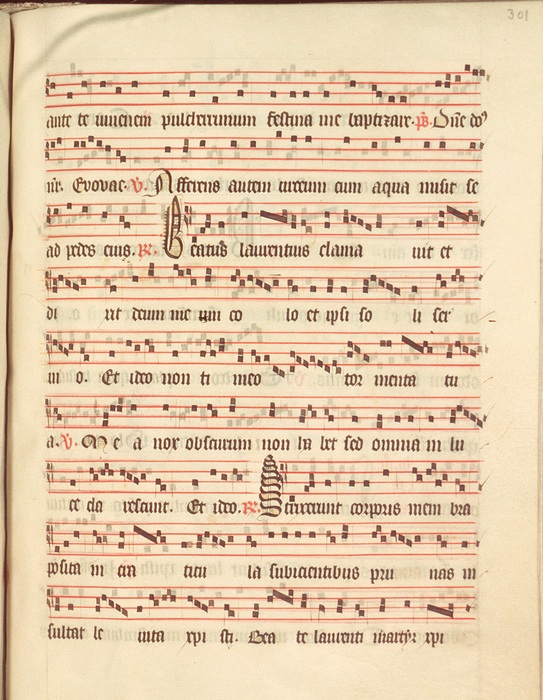 301
ante te iuuenem pulcherrimum festina me baptizare. ps. Dñe dõ
nr̃. Evovae. V. Afferens autem urceum cum aqua misit se
ad pedes eius. R. Beatus laurentius clama uit et
di xit deum meum co lo et ipsi so li ser
ui o. Et ideo non ti meo tor menta tu
a. V. Me a nox obscurum non ha bet sed omnia in lu
ce cla rescunt. Et ideo. R. Strixerunt corporis mem bra
posita in cra ticu la subicientibus pru nas in
sultat le uita xpi sti. Bea te laurenti martyr xpi